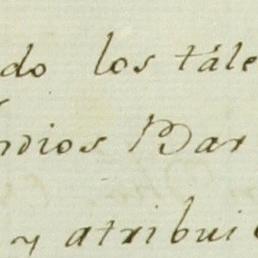 do los tále
ndios Bar
y atribui